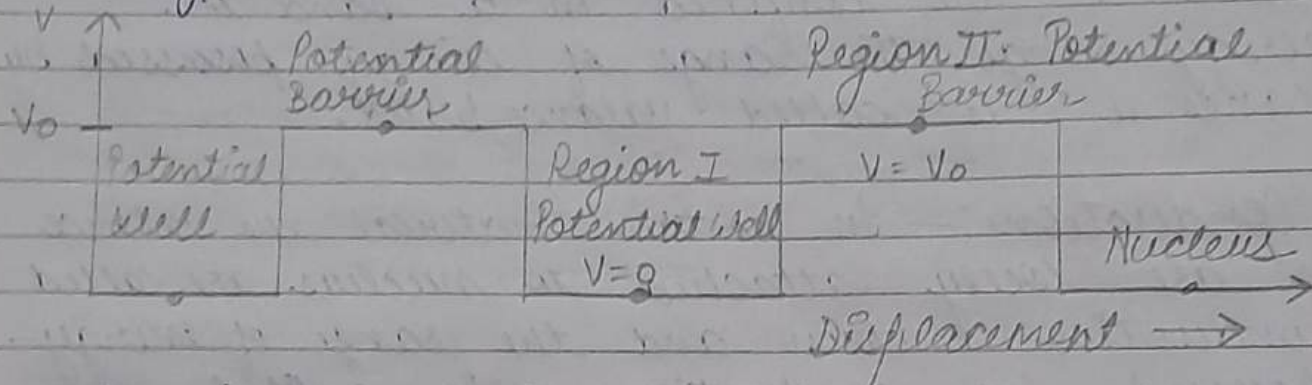 V
Potential Barrier
Region II: Potential Barrier
Vo
Potential Well
Region I
Potential Well
V=0
V = Vo
Nucleus
Displacement